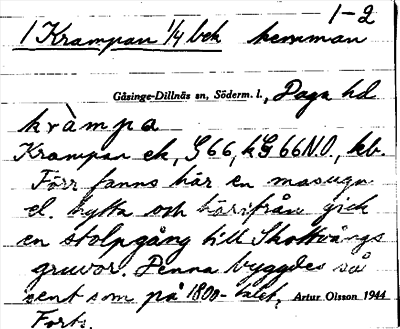 1-2
1 Krampan 1/4 bek hemman
Gåsinge-Dillnäs sn, Söderm. l., Daga hd
kràmpa
Krampan ek, G66, hG66N.O., kb.
Förr fanns här en masugn
el. hytta och härifrån gick
en stolpgång till Skottvångs
gruvor. Denna byggdes så
sent som på 1800-talet. Artur Olsson 1944
Forts.